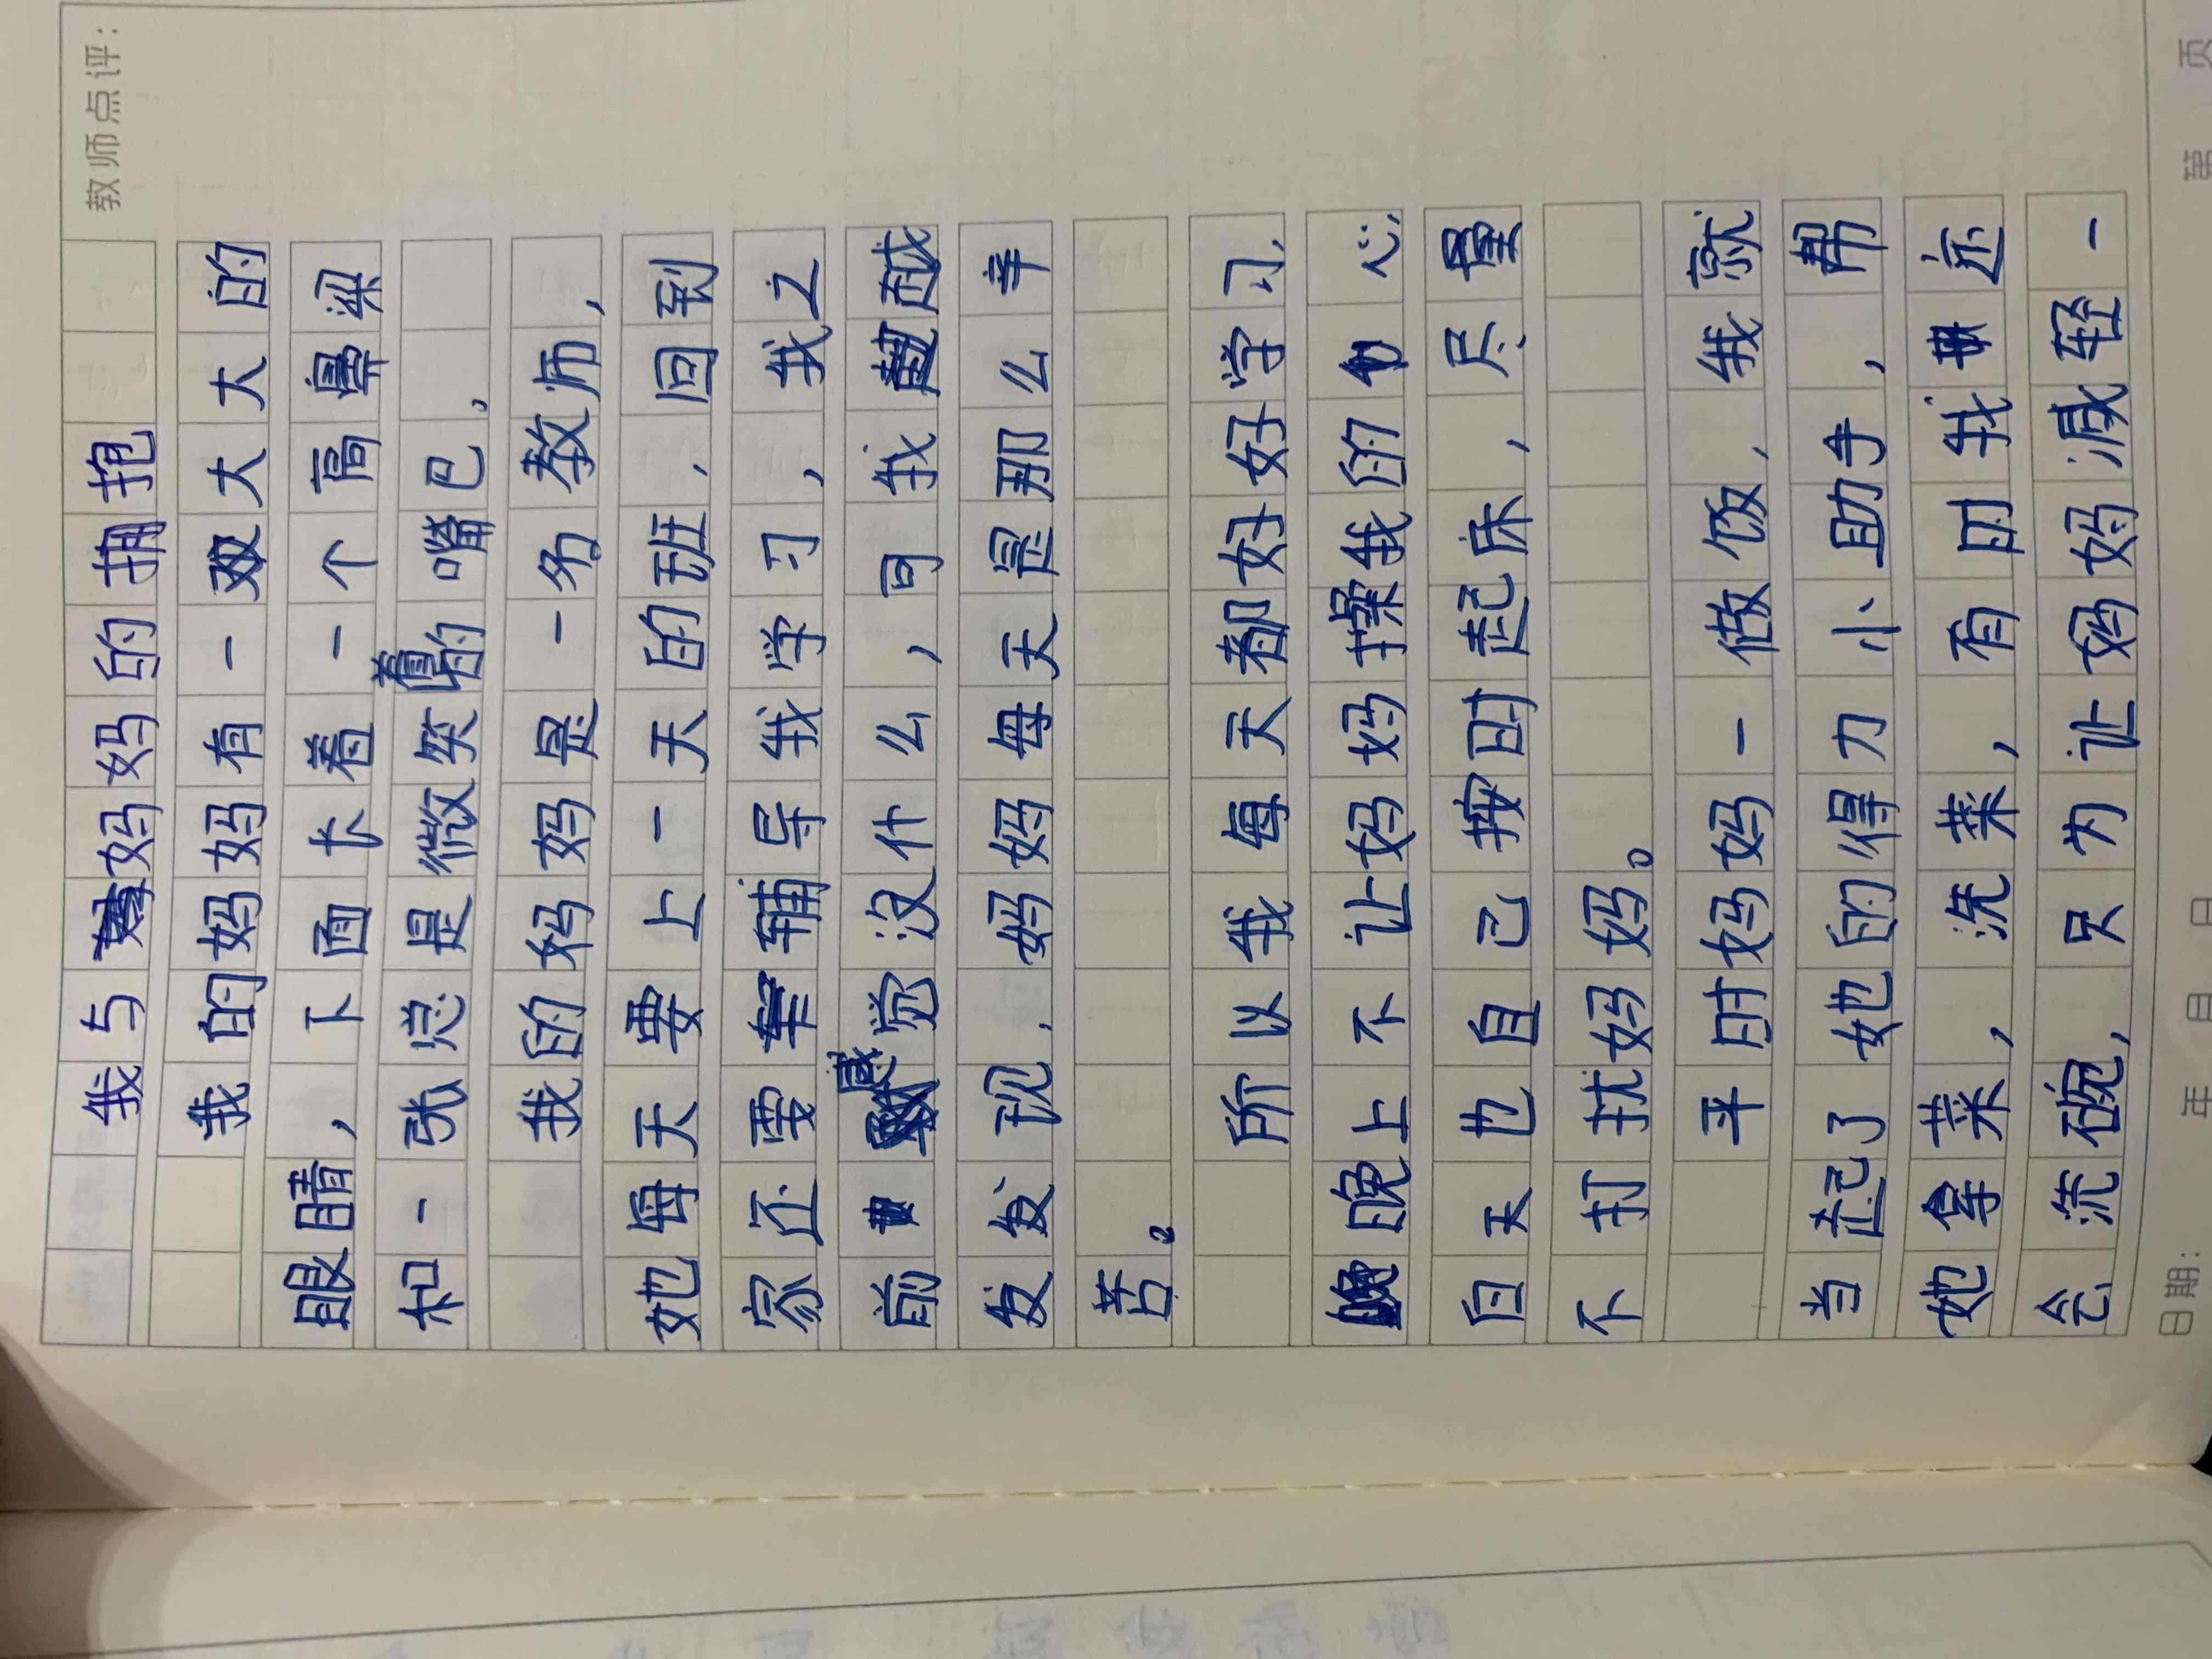 教师点评：
我与妈妈的拥抱
我的妈妈有一双大大的
眼睛，下面长着一个高鼻梁
和一张总是微笑着的嘴巴。
我的妈妈是一名教师，
她每天要上一天的班，回到
家还要辅导我学习，我之
前感觉没什么，可我越
发发现，妈妈每天是那么辛
苦。
所以我每天都好好学习，
晚上不让妈妈操我的心，
白天也自己按时起床，尽量
不打扰妈妈。
平时妈妈一做饭，我就
当起了她的得力小助手，帮
她拿菜，洗菜，有时我还
会洗碗，只为让妈妈减轻一
日期： 年 月 日 第 页